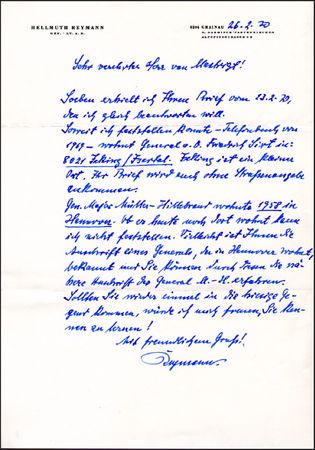 HELLMUTH REYMANN
GEN. LT. A. D.
8104 GRAINAU 26.2.70
B. GARMISCH-PARTENKIRCHEN
Sehr verehrter Herr von
Soeben erhielt ich Ihren Brief vom 23.2.70,
den ich gleich beantworten will.
Soweit ich feststellen konnte - Telefonbuch von
1969 - wohnt General a. D. Friedrich Sixt in:
8021 Icking/Isartal. Icking ist ein kleiner
Ort, Ihr Brief wird auch ohne Straßenangabe
ankommen.
Gen. Major Müller-Hillebrand wohnte 1958 in
Hannover. Ob er heute noch dort wohnt kann
ich nicht feststellen. Vielleicht ist Ihnen die
Anschrift eines Generals, der in Hannover wohnt,
bekannt und Sie können durch diesen die nä-
here Anschrift des General M.-H. erfahren.
Sollten Sie wieder einmal in die hiesige Ge-
gend kommen, würde ich mich freuen, Sie ken-
nen zu lernen!
Mit freundlichem Gruß!
Reymann.